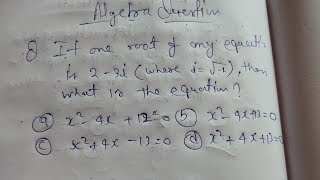 Algebra Question
Q If one root of any equati
is 2-3i (where i=√-1), then
what is the equation?
(a) x²-4x+12=0 (b) x²-4x+13=0
(c) x²+4x-13=0 (d) x²+4x+13=0